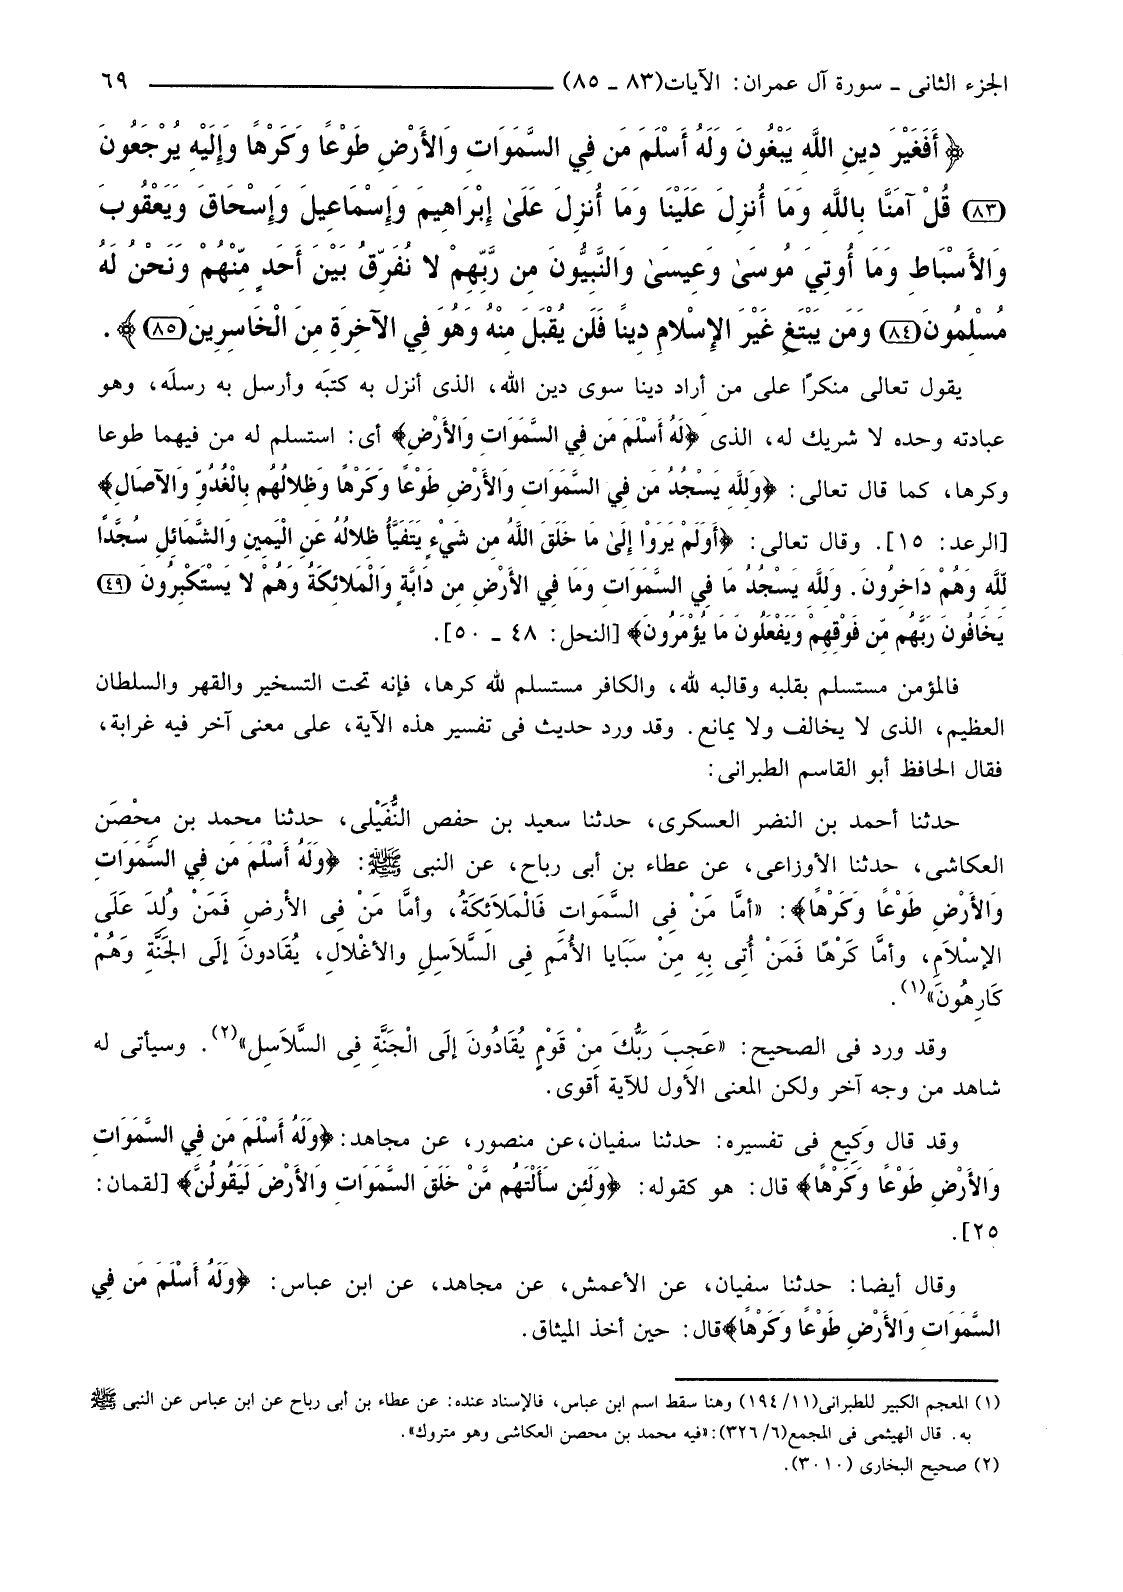 الجزء الثانى ـ سورة آل عمران: الآيات(٨٣ ـ ٨٥) ٦٩
﴿ أَفَغَيْرَ دِينِ اللَّهِ يَبْغُونَ وَلَهُ أَسْلَمَ مَن فِي السَّمَوَاتِ وَالأَرْضِ طَوْعًا وَكَرْهًا وَإِلَيْهِ يُرْجَعُونَ
(٨٣) قُلْ آمَنَّا بِاللَّهِ وَمَا أُنزِلَ عَلَيْنَا وَمَا أُنزِلَ عَلَىٰ إِبْرَاهِيمَ وَإِسْمَاعِيلَ وَإِسْحَاقَ وَيَعْقُوبَ
وَالأَسْبَاطِ وَمَا أُوتِيَ مُوسَىٰ وَعِيسَىٰ وَالنَّبِيُّونَ مِن رَّبِّهِمْ لا نُفَرِّقُ بَيْنَ أَحَدٍ مِّنْهُمْ وَنَحْنُ لَهُ
مُسْلِمُونَ (٨٤) وَمَن يَبْتَغِ غَيْرَ الإِسْلامِ دِينًا فَلَن يُقْبَلَ مِنْهُ وَهُوَ فِي الآخِرَةِ مِنَ الْخَاسِرِينَ (٨٥) ﴾ .
يقول تعالى منكرًا على من أراد دينا سوى دين الله، الذى أنزل به كتبَه وأرسل به رسلَه، وهو
عبادته وحده لا شريك له، الذى ﴿لَهُ أَسْلَمَ مَن فِي السَّمَوَاتِ وَالأَرْضِ﴾ أى: استسلم له من فيهما طوعا
وكرها، كما قال تعالى: ﴿وَلِلَّهِ يَسْجُدُ مَن فِي السَّمَوَاتِ وَالأَرْضِ طَوْعًا وَكَرْهًا وَظِلالُهُم بِالْغُدُوِّ وَالآصَالِ﴾
[الرعد: ١٥]. وقال تعالى: ﴿أَوَلَمْ يَرَوْا إِلَىٰ مَا خَلَقَ اللَّهُ مِن شَيْءٍ يَتَفَيَّأُ ظِلالُهُ عَنِ الْيَمِينِ وَالشَّمَائِلِ سُجَّدًا
لِلَّهِ وَهُمْ دَاخِرُونَ . وَلِلَّهِ يَسْجُدُ مَا فِي السَّمَوَاتِ وَمَا فِي الأَرْضِ مِن دَابَّةٍ وَالْمَلائِكَةُ وَهُمْ لا يَسْتَكْبِرُونَ (٤٩)
يَخَافُونَ رَبَّهُم مِّن فَوْقِهِمْ وَيَفْعَلُونَ مَا يُؤْمَرُونَ﴾ [النحل: ٤٨ ـ ٥٠].
فالمؤمن مستسلم بقلبه وقالبه لله، والكافر مستسلم لله كرها، فإنه تحت التسخير والقهر والسلطان
العظيم، الذى لا يخالف ولا يمانع. وقد ورد حديث فى تفسير هذه الآية، على معنى آخر فيه غرابة،
فقال الحافظ أبو القاسم الطبرانى:
حدثنا أحمد بن النضر العسكرى، حدثنا سعيد بن حفص النُّفَيْلى، حدثنا محمد بن مِحْصَن
العكاشى، حدثنا الأوزاعى، عن عطاء بن أبى رباح، عن النبى ﷺ: ﴿وَلَهُ أَسْلَمَ مَن فِي السَّمَوَاتِ
وَالأَرْضِ طَوْعًا وَكَرْهًا﴾: «أمَّا مَنْ فِى السَّمَواتِ فَالْمَلاَئِكَةُ، وأمَّا مَنْ فِى الأرْضِ فَمَنْ وُلِدَ عَلَى
الإسْلاَمِ، وأمَّا كَرْهًا فَمَنْ أُتِى بِهِ مِنْ سَبَايا الأُمَمِ فِى السَّلاَسِلِ والأغْلالِ، يُقَادونَ إلَى الجَنَّةِ وَهُمْ
كَارِهُونَ»(١).
وقد ورد فى الصحيح: «عَجِبَ رَبُّكَ مِنْ قَوْمٍ يُقَادُونَ إلَى الْجَنَّةِ فِى السَّلاَسِل»(٢). وسيأتى له
شاهد من وجه آخر ولكن المعنى الأول للآية أقوى.
وقد قال وَكِيع فى تفسيره: حدثنا سفيان،عن منصور، عن مجاهد: ﴿وَلَهُ أَسْلَمَ مَن فِي السَّمَوَاتِ
وَالأَرْضِ طَوْعًا وَكَرْهًا﴾ قال: هو كقوله: ﴿وَلَئِن سَأَلْتَهُم مَّنْ خَلَقَ السَّمَوَاتِ وَالأَرْضَ لَيَقُولُنَّ﴾ [لقمان:
٢٥].
وقال أيضا: حدثنا سفيان، عن الأعمش، عن مجاهد، عن ابن عباس: ﴿وَلَهُ أَسْلَمَ مَن فِي
السَّمَوَاتِ وَالأَرْضِ طَوْعًا وَكَرْهًا﴾قال: حين أخذ الميثاق.
(١) المعجم الكبير للطبرانى(١١/ ١٩٤) وهنا سقط اسم ابن عباس، فالإسناد عنده: عن عطاء بن أبى رباح عن ابن عباس عن النبى ﷺ
به. قال الهيثمى فى المجمع(٦/ ٣٢٦):«فيه محمد بن محصن العكاشى وهو متروك».
(٢) صحيح البخارى (٣٠١٠).